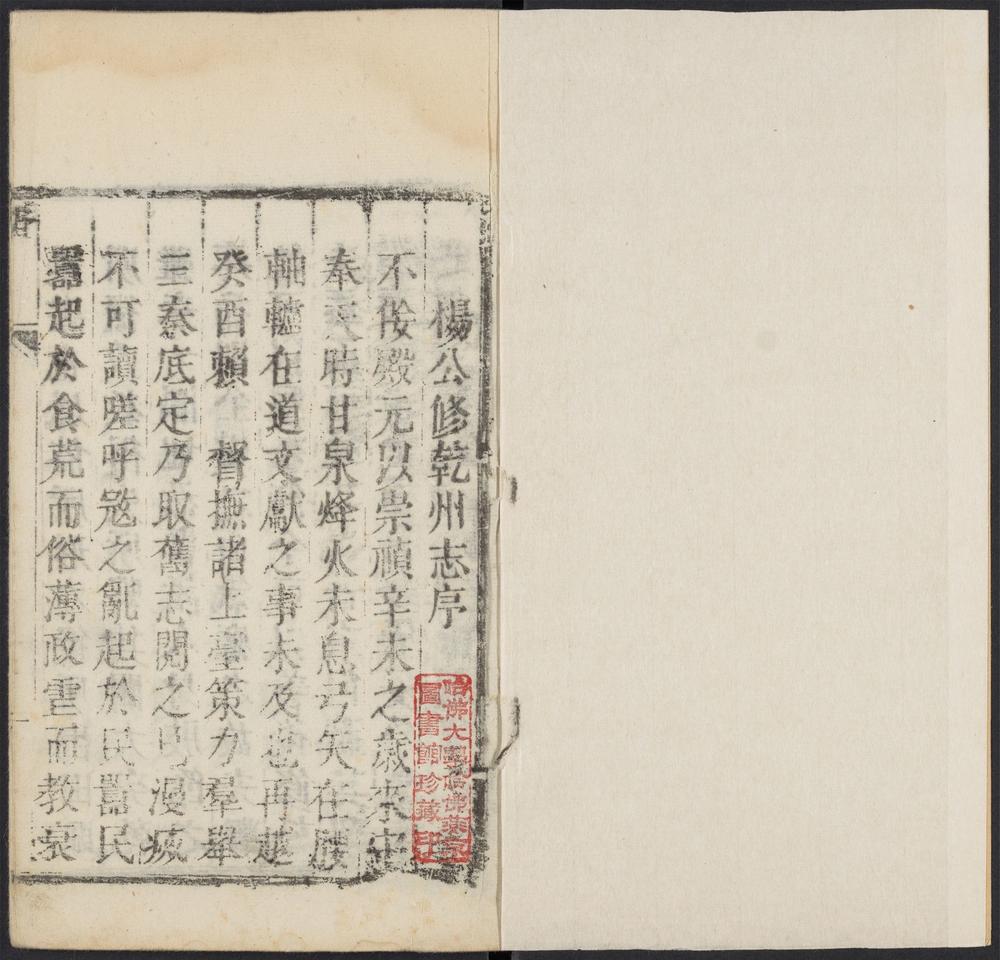 楊公修乾州志序
不佞殿元以崇禎辛未之歲來守
奉天時甘泉烽火未息弓矢在腰
軸轤在道文獻之事未及也再越
癸酉賴　督撫諸上臺策力羣舉
三秦底定乃取舊志閱之已漫漶
不可讀嗟呼冦之亂起於民嚚民
嚚起於食荒而俗薄政䨥而教衰
哈佛大學哈佛燕京
圖書館珍藏印